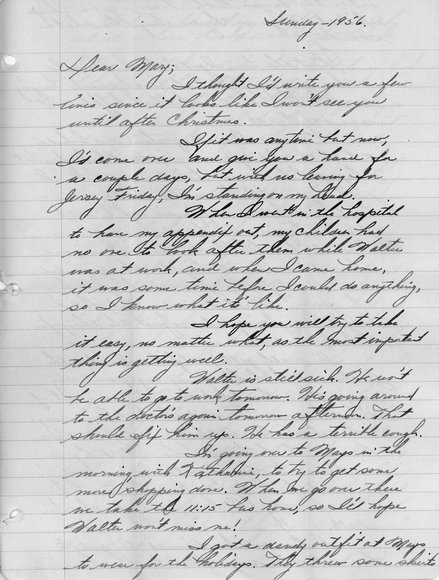 Sunday - 1956.
Dear Mary;
I thought I'd write you a few
lines since it looks like I won't see you
until after Christmas.
If it was anytime but now,
I'd come over and give you a hand for
a couple days, but with us leaving for
Jersey Friday, I'm standing on my head.
When I went in the hospital
to have my appendix out, my children had
no one to look after them while Walter
was at work, and when I came home,
it was some time before I could do anything,
so I know what it's like.
I hope you will try to take
it easy, no matter what, as the most important
thing is getting well.
Walter is still sick. He won't
be able to go to work tomorrow. He's going around
to the doctor's again tomorrow afternoon. That
should fix him up. He has a terrible cough.
I'm going over to Mays in the
morning with Katherine, to try to get some
more shopping done. When we go over there
we take the 11:15 bus home, so let's hope
Walter won't miss me!
I got a dandy outfit at Mays
to wear for the holidays. They threw some skirts